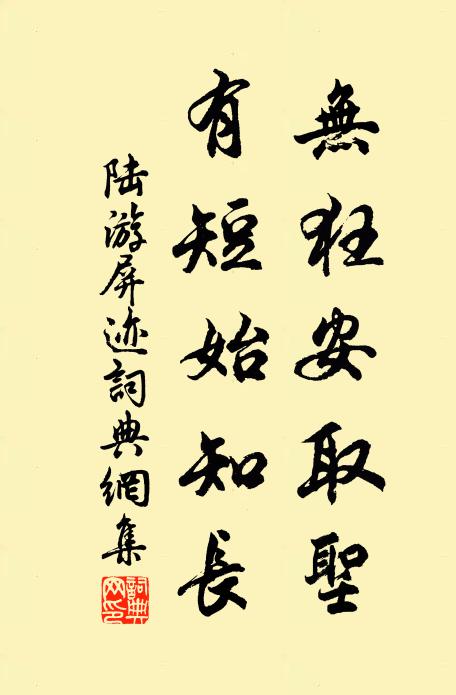 無狂安取聖
有短始知長
陆游屏迹詞典網集
詞典网印